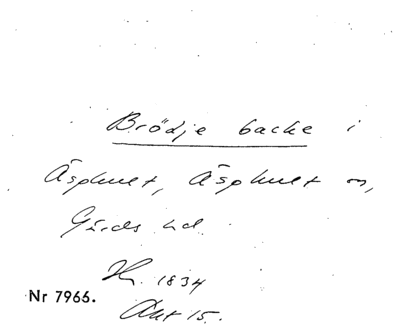 Brödje backe i
Äsphult, Äsphult sn,
Gärds hd.
Hr. 1834
Nr 7966.
Akt 15.